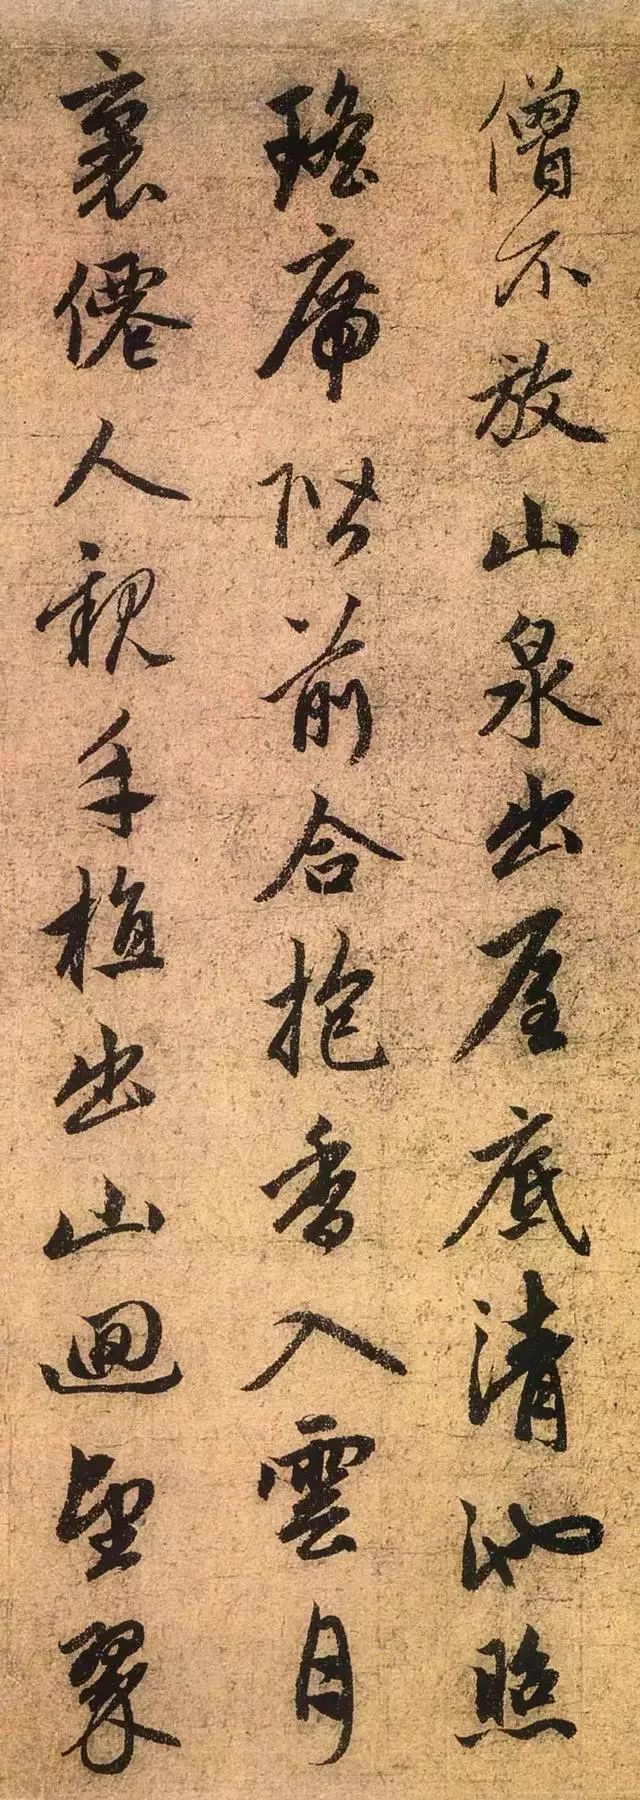 僧不放山泉出厓底清池照
瑤席階前合抱香入雲月
裏僊人親手植出山迴望翠